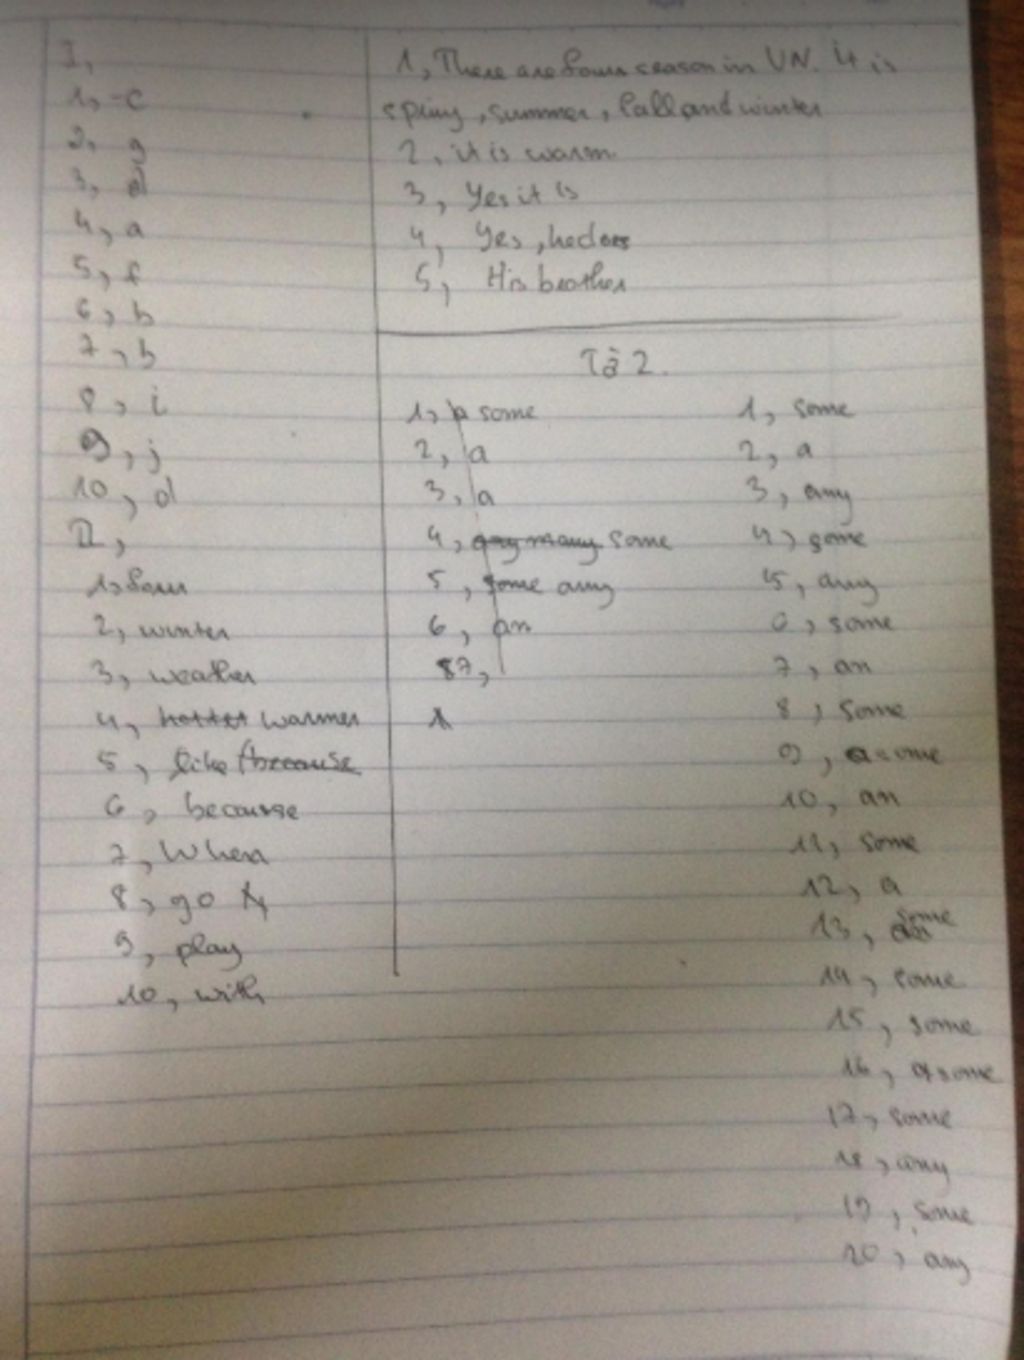 I,
1, -c
2, g
3, d
4, a
5, f
6, b
7, h
8, i
9, j
10, d
II,
1, four
2, winter
3, weather
4, warmer
5, like because
6, because
7, When
8, go
9, play
10, with
1, There are four season in VN. it is
spring, summer, fall and winter
2, it is warm
3, Yes it is
4, Yes, he does
5, His brother
Tờ 2.
1, some
2, a
3, a
4, any many some
5, some any
6, an
87,
1
1, some
2, a
3, any
4, some
5, any
6, some
7, an
8, some
9, some
10, an
11, some
12, a
13, some
14, some
15, some
16, some
17, some
18, any
19, some
20, any